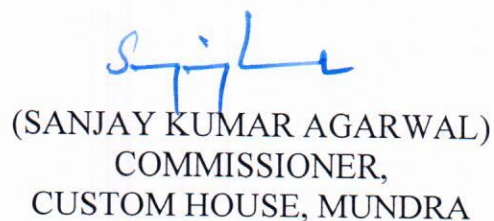 (SANJAY KUMAR AGARWAL)
COMMISSIONER,
CUSTOM HOUSE, MUNDRA